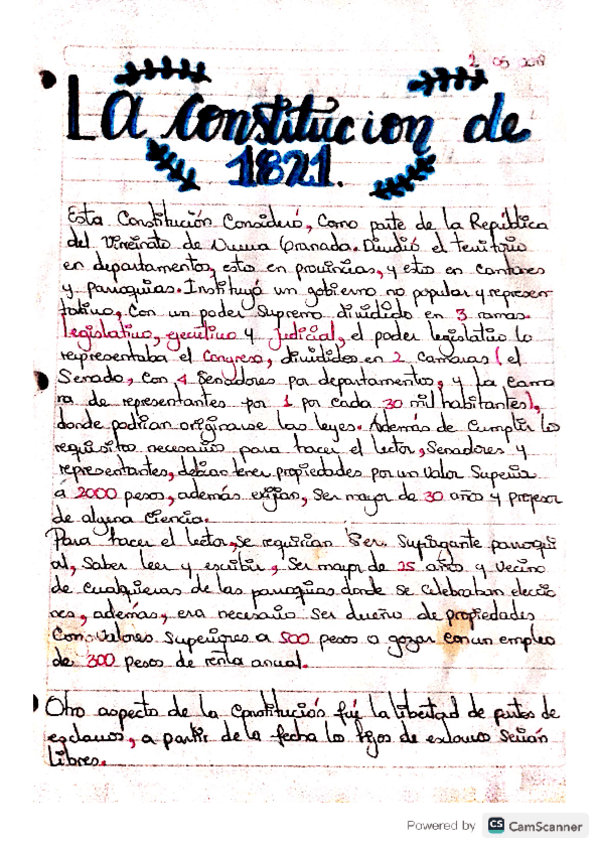 2 05 2018
La Constitucion de
1821.
Esta Constitución Consideró, Como parte de la República
del Virreinato de Nueva Granada. Dividió el territorio
en departamentos, estos en provincias, y estos en cantones
y parroquias. Instituyó un gobierno no popular y represen
tativo, Con un poder Supremo dividido en 3 ramas.
legislativo, ejecutivo y Judicial, el poder legislativo lo
representaba el Congreso, divididos en 2 Camaras (el
Senado, Con 4 Senadores por departamentos, y la Cama
ra de representantes por 1 por cada 30 mil habitantes),
donde podrian originarse las leyes. Además de Cumplir los
requisitos necesario para hacer el lector, Senadores y
representantes, debian tener propiedades por un valor Superior
á 2000 pesos, además exijian, Ser mayor de 30 años y profesor
de alguna Ciencia.
Para hacer el lector, se requirian Ser. Sufragante parroqui
al, Saber leer y escribir, Ser mayor de 25 años y Vecino
de Cualquieras de las parroquias donde se celebraban eleccio
nes, además, era necesario Ser dueño de propiedades
Con valores Superiores a 500 pesos o gozar con un empleo
de 300 pesos de renta anual.
Otro aspecto de la Constitución fué la libertad de partos de
esclavos, a partir de la fecha los hijos de esclavos Serián
libres.
Powered by CS CamScanner